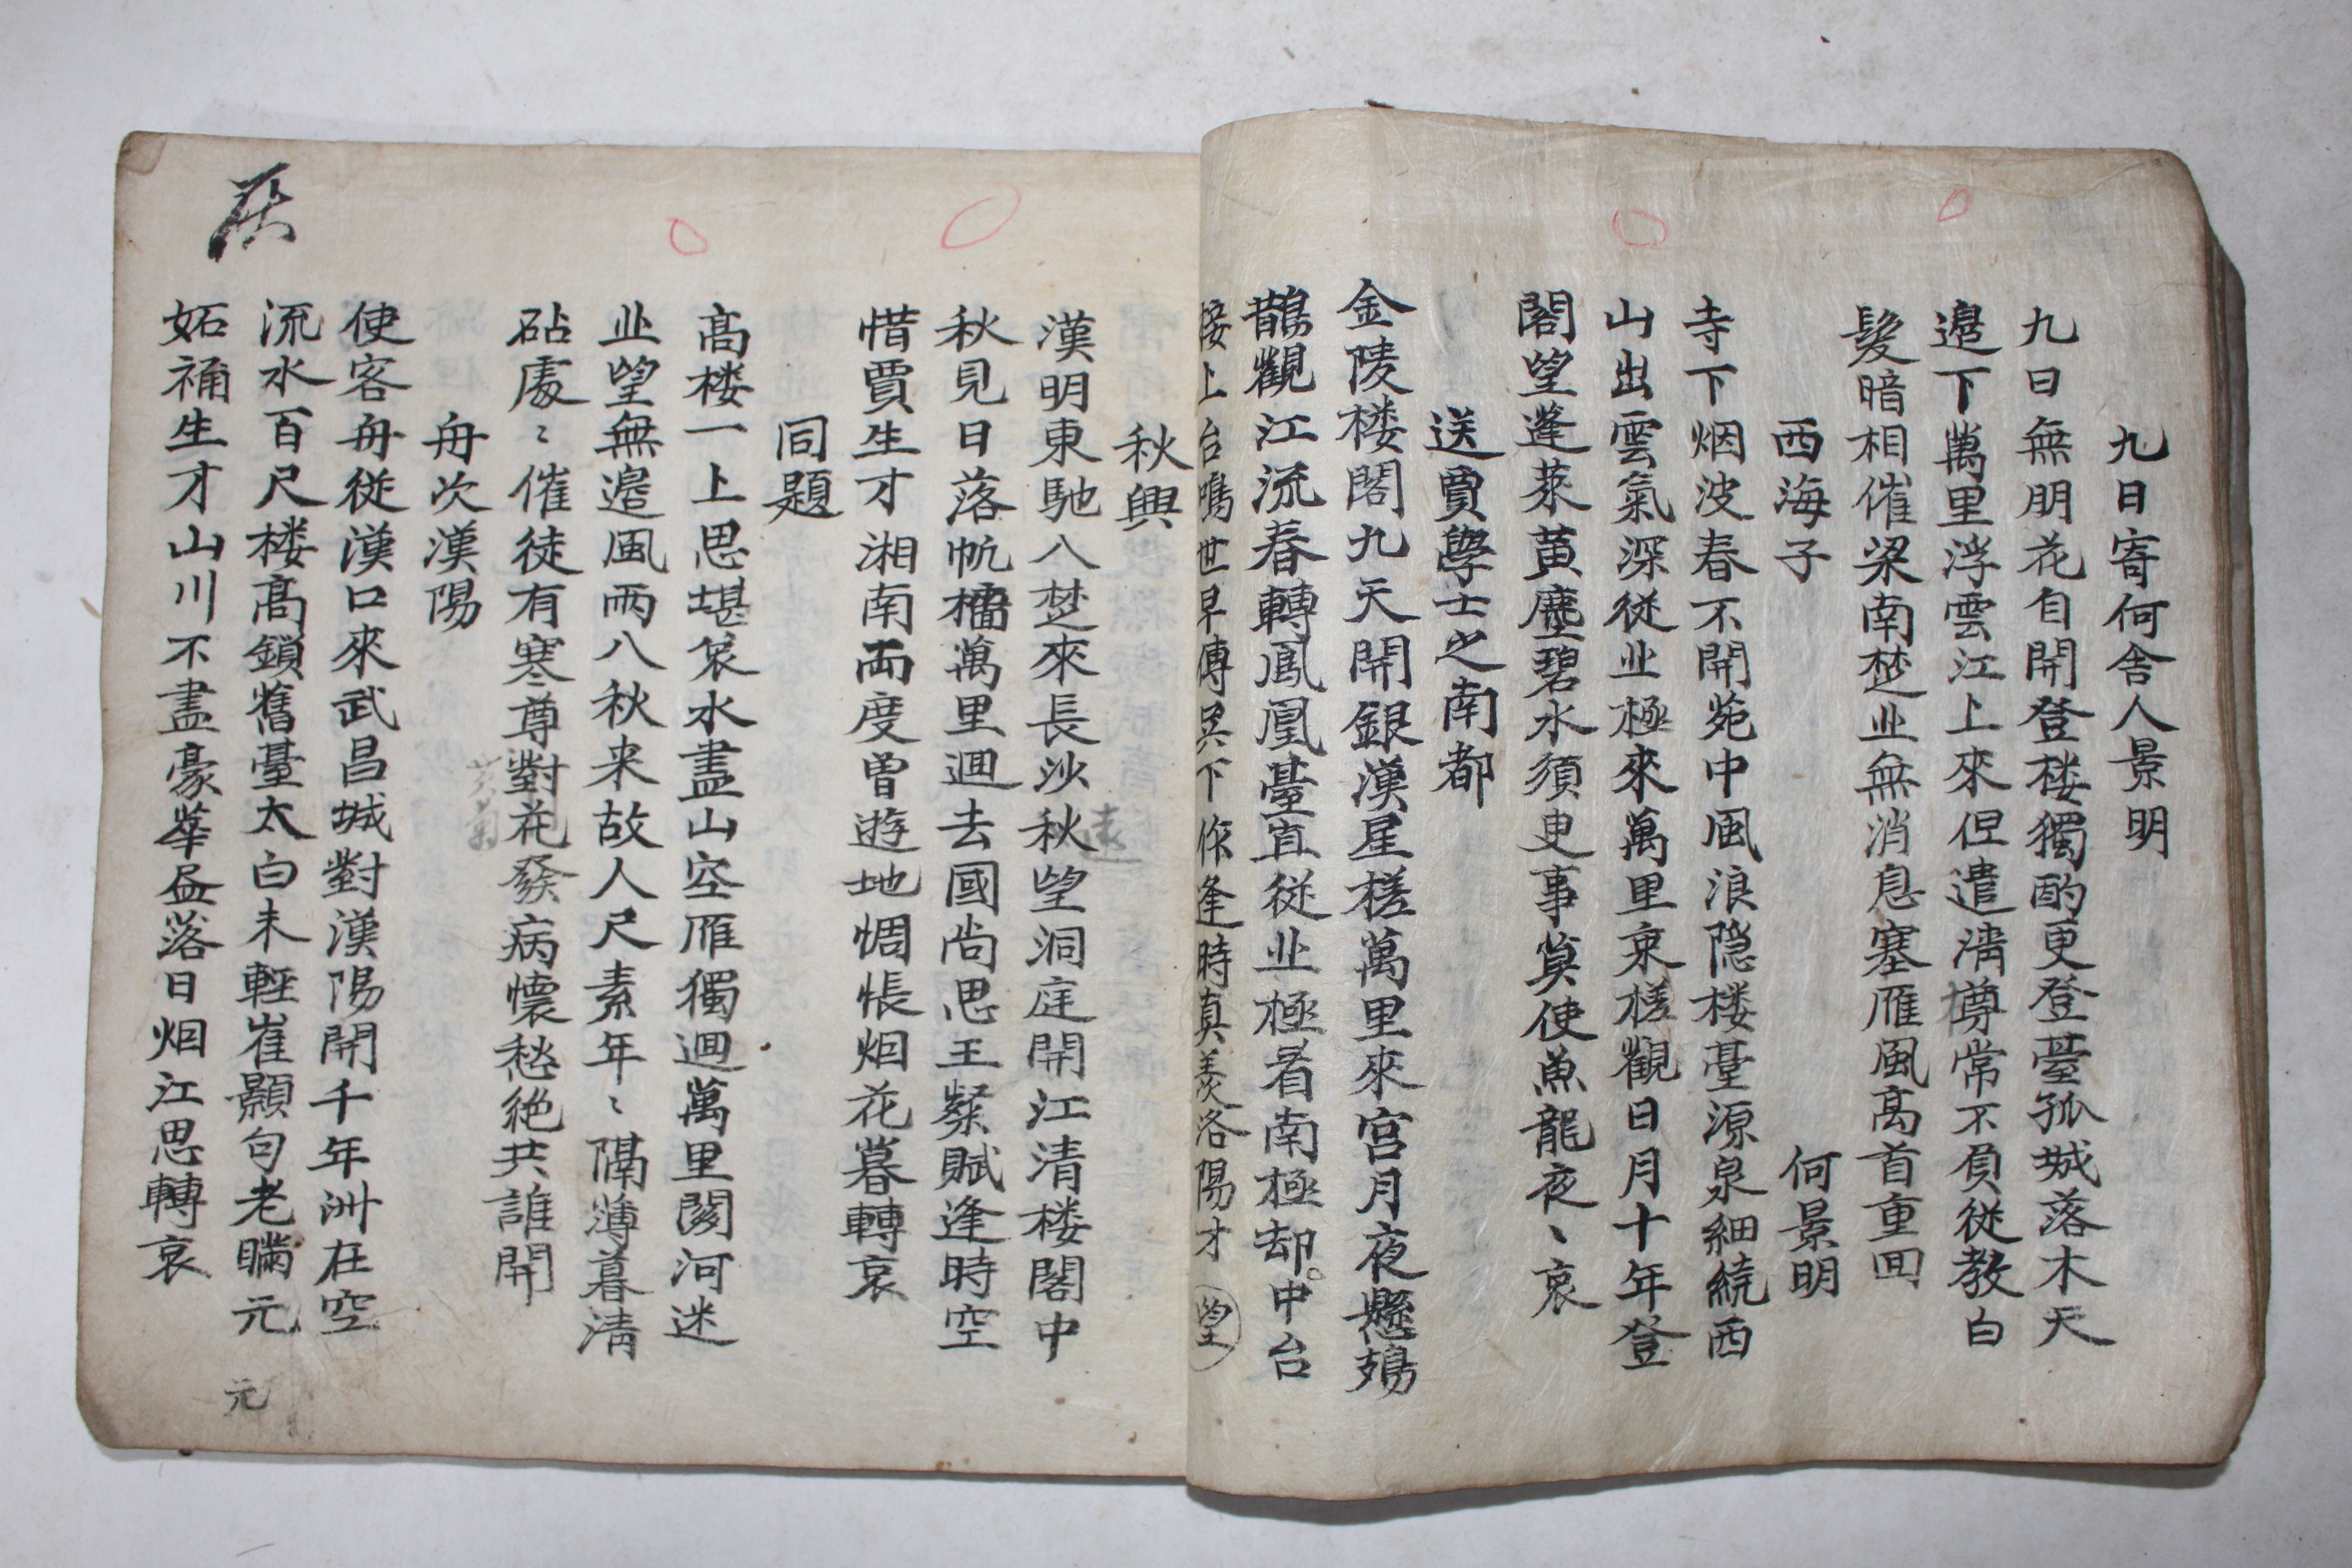 九日寄何舍人景明
九日無朋花自開登楼獨酌更登臺孤城落木天
邉下萬里浮雲江上來但遣清樽常不負従教白
髮暗相催梁南楚北無消息塞雁風髙首重囬
西海子 何景明
寺下烟波春不開苑中風浪隠楼臺源泉細繞西
山出雲氣深従北極來萬里束槎觀日月十年登
閣望蓬萊黄塵碧水須臾事莫使魚龍夜〻哀
送賈學士之南都
金陵楼閣九天開銀漢星槎萬里來宮月夜懸鳷
鵲觀江流春轉鳳凰臺直従北極看南極却中台
接上台鳴世早傳吳下作逢時真羨洛陽才 望
秋興
漢明東馳八楚來長沙秋望洞庭開江清楼閣中
遠
秋見日落帆檣萬里迴去國尚思王粲賦逢時空
惜賈生才湘南両度曽遊地惆悵烟花暮轉哀
同題
髙楼一上思堪哀水盡山空雁獨迴萬里関河迷
北望無邉風雨八秋来故人尺素年〻隔薄暮清
砧處〻催徒有寒尊對花發病懷愁絶共誰開
黄菊
舟次漢陽
使客舟従漢口來武昌城對漢陽開千年洲在空
流水百尺楼髙鎖舊臺太白未輕崔顥句老瞞元
妬禰生才山川不盡豪華盡落日烟江思轉哀
元